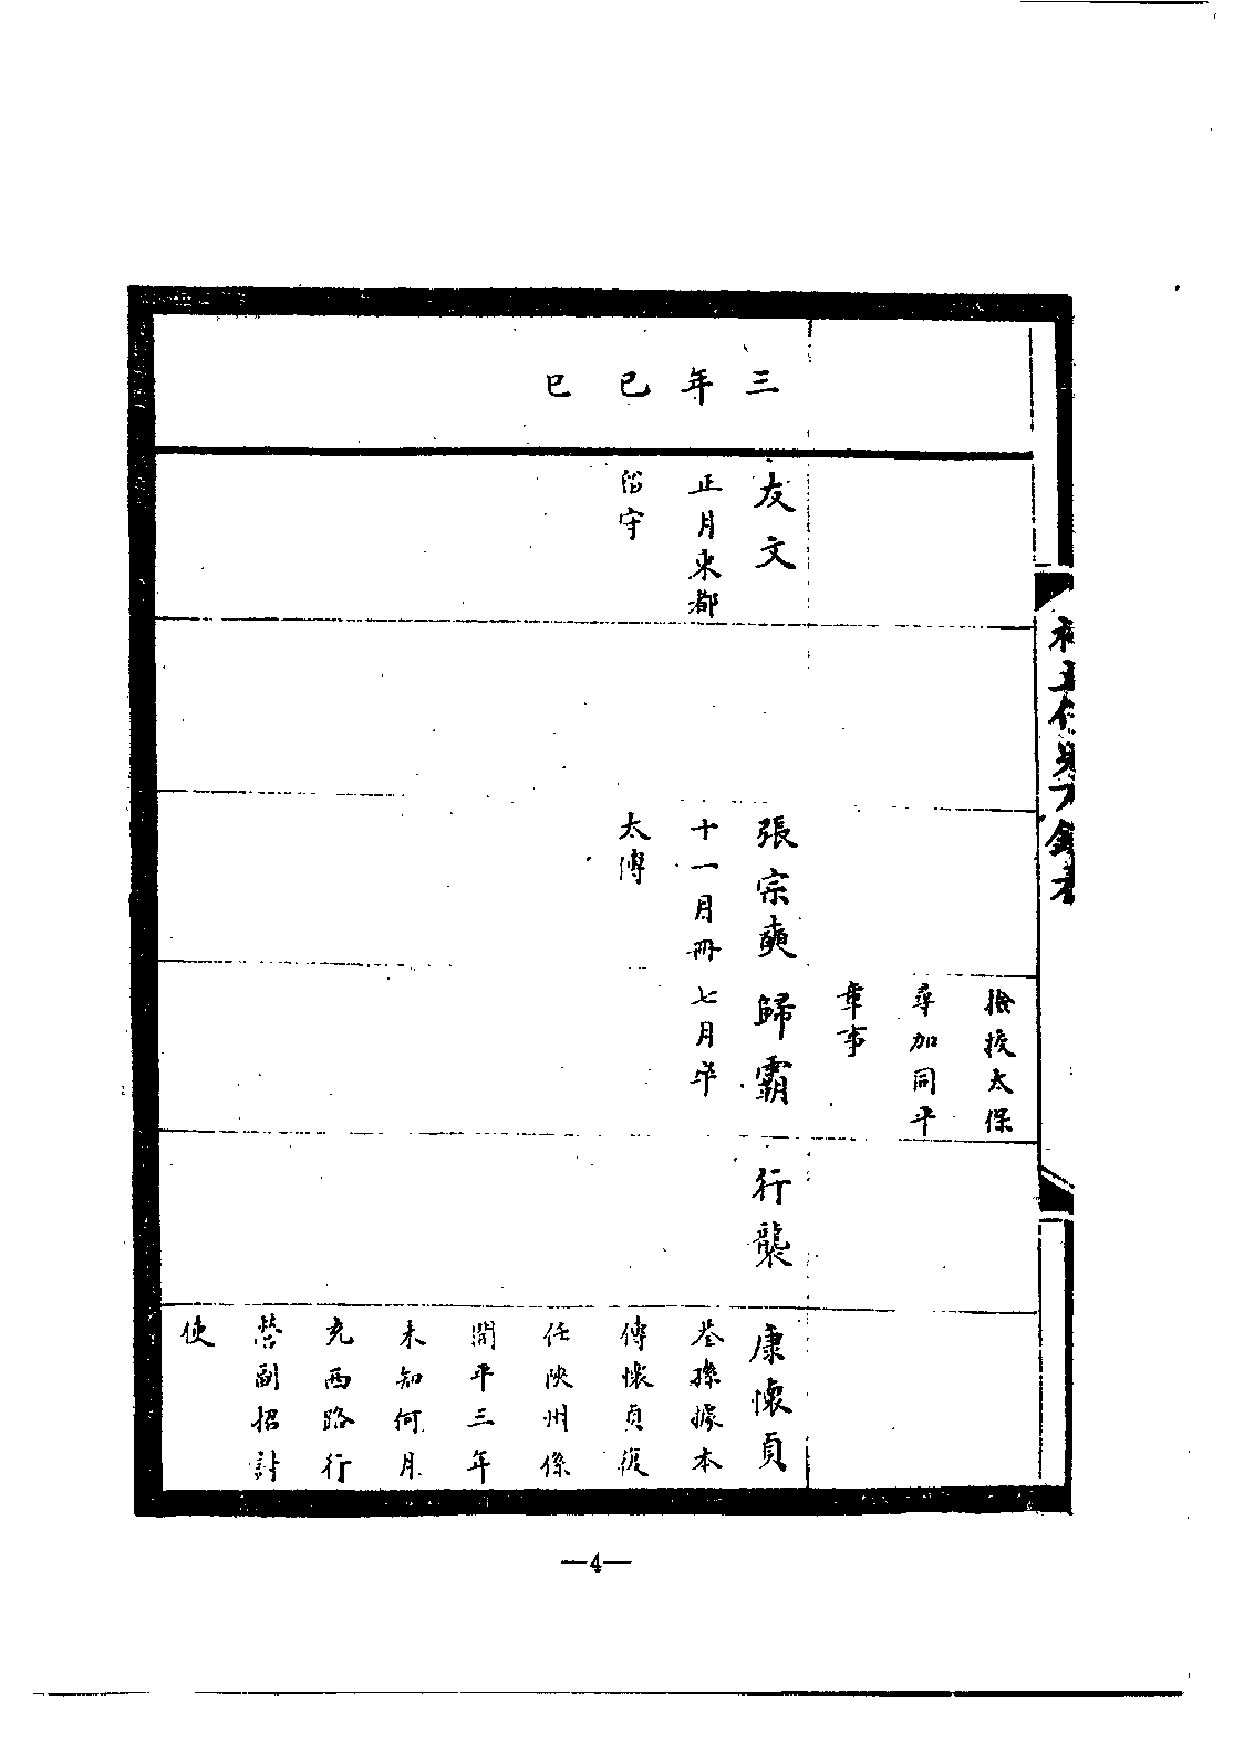 檢挍太保
尋加同平
章事
三年已巳
友文
正月東都
留守
張宗奭
十一月冊
太傅
歸霸
七月卒
行襲
康懷貞
荃孫據本
傳懷貞復
任陝州係
開平三年
未知何月
充西路行
營副招討
使
—4—